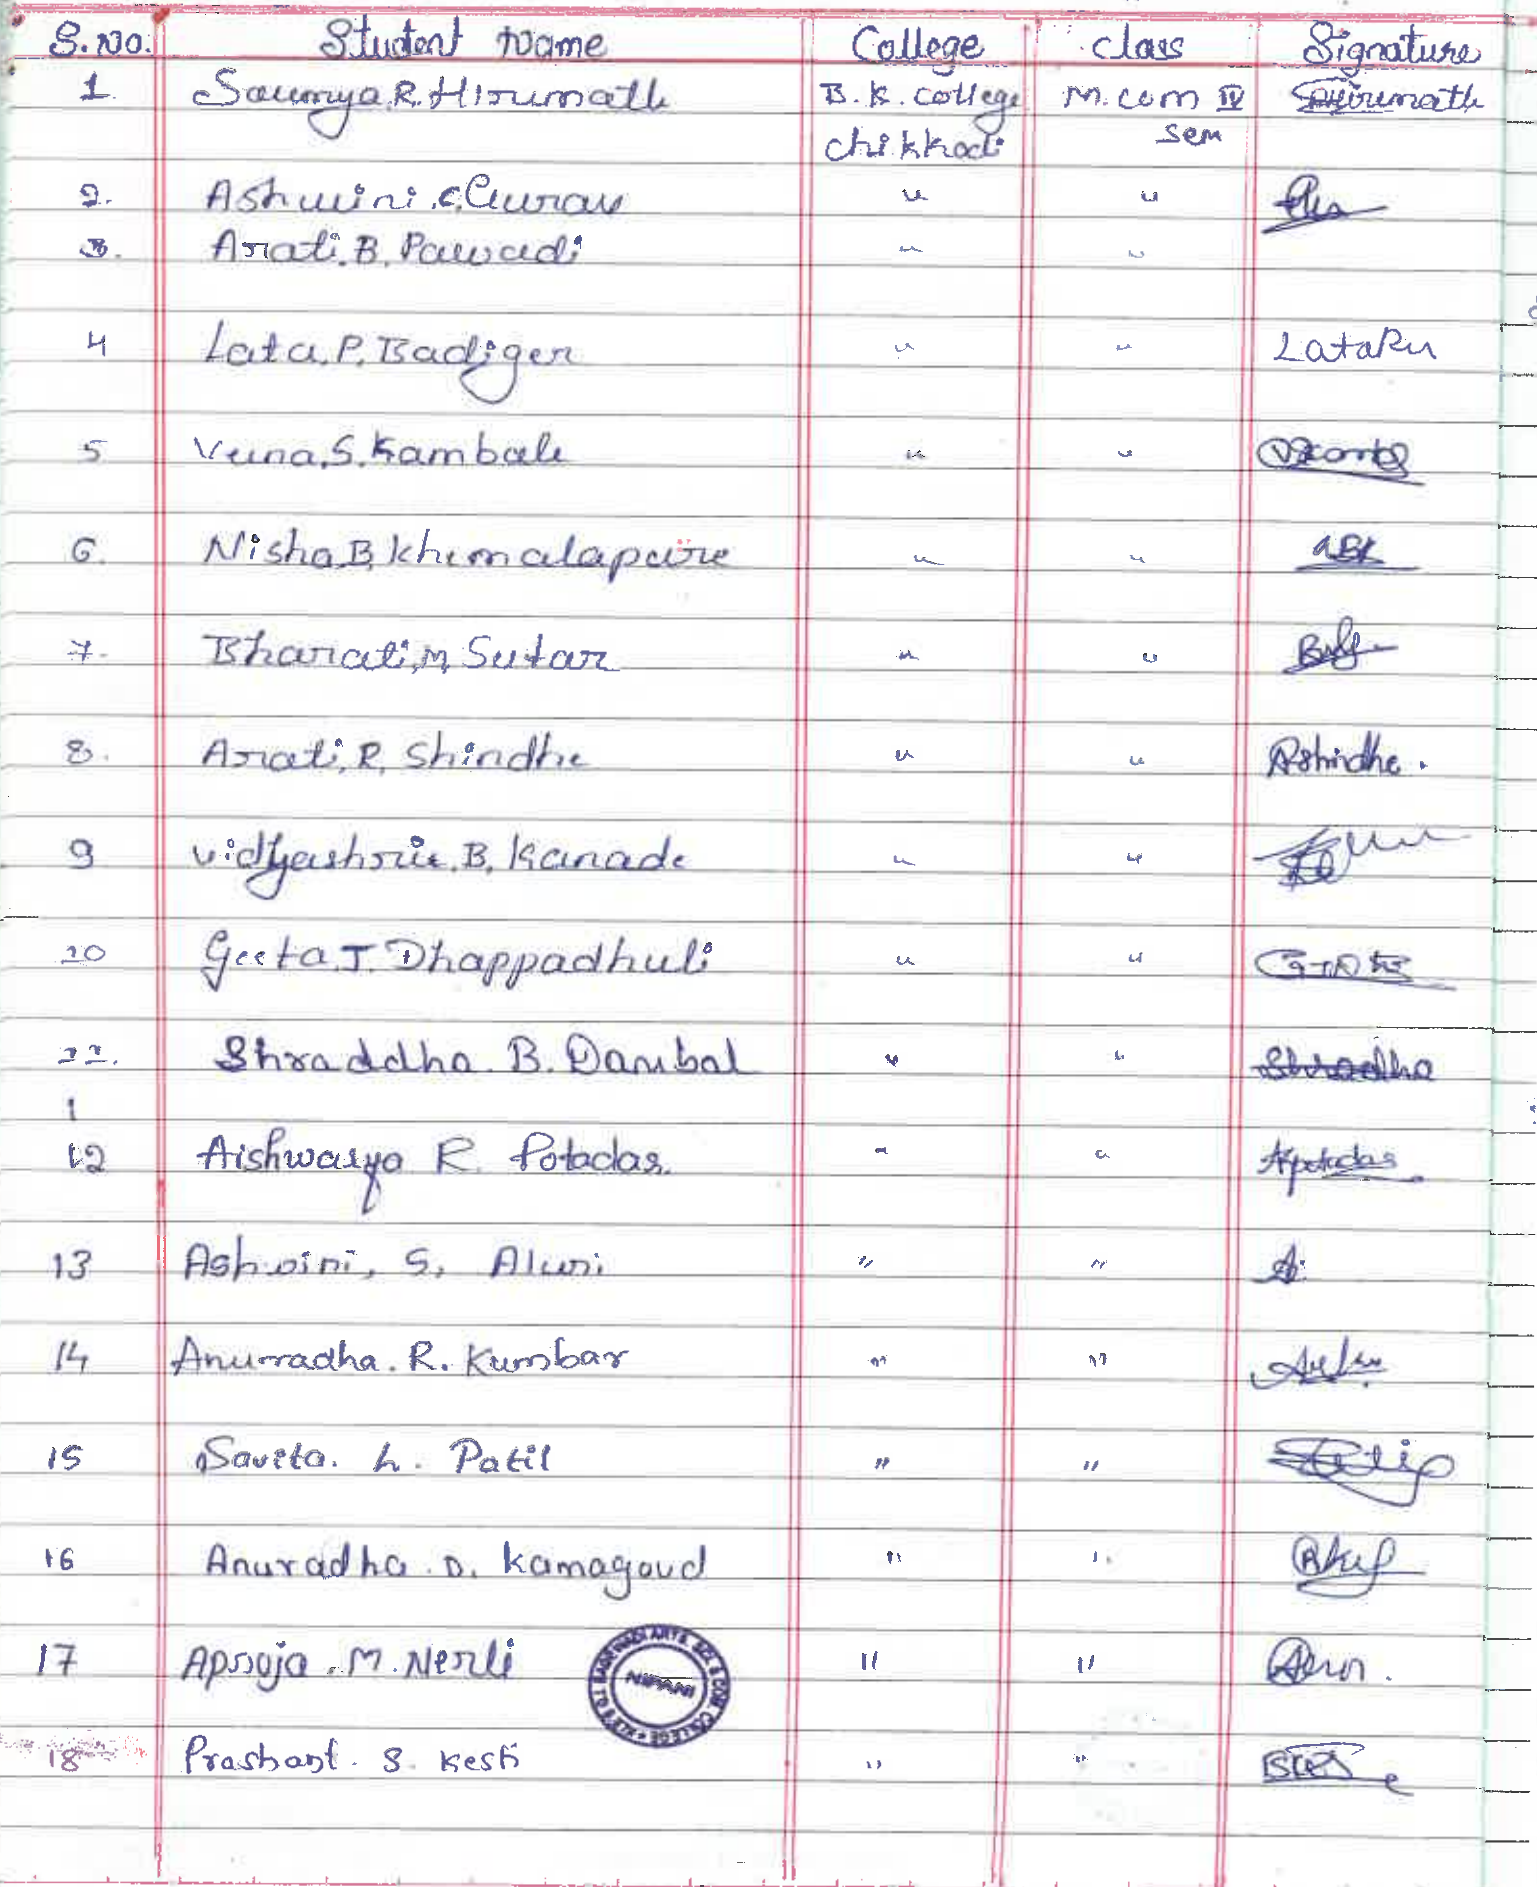 S.No. Student Name College Class Signature
1 Soumya.R.Hirumath B.K.College M.com IV Hirumath
chikkodi sem
2. Ashwini.C.Gurav " "
3. Arati.B.Pawadi " "
4 Lata.P.Badiger " " Lata
5 Veena.S.Kambale " "
6. Nisha.B.Khemalapure " " NBK
7. Bharati.M.Sutar " "
8. Arati.R.Shindhe " " AShindhe.
9 Vidyashrie.B.Kanade " "
10 Geeta.J.Dhappadhuli " "
11. Shraddha.B.Dambal " " Shradha
1
12 Aishwarya R. Potadas. " " Apotadas
13 Ashwini, S, Aluri " " A.
14 Anurradha.R.Kumbar " "
15 Savita. L. Patil " "
16 Anuradha.D.Kamagoud " "
17 Apsoja.M.Nerli " "
NIPANI
18 Prashant.S.Kesti " "